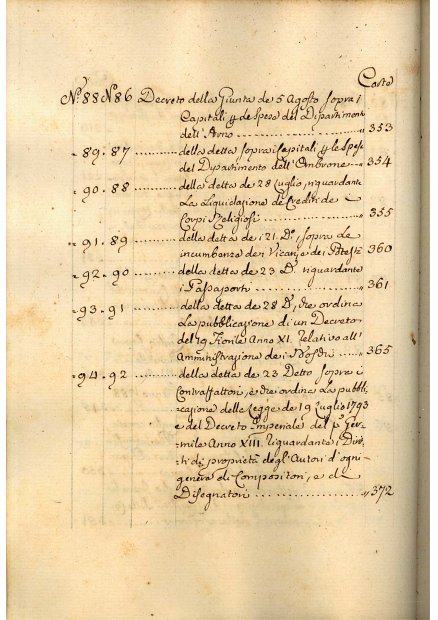 Carte
N.º 88 N 86 Decreto della Giunta de 5 Agosto sopra i
Capitali p le Spese del Dipartimento
dell'Arno ........ " 353
" 89. 87 ........ della detta sopra i Capitali p le Spese
del Dipartimento dell'Ombrone " 354
" 90. 88 ........ della detta de 28 Luglio, riguardante
La Liquidazione de Crediti de
Corpi Religiosi ........ " 355
" 91. 89 ........ della detta de i 21. D.º, sopra Le
incumbenze dei Vicarj e dei Potestà 360
" 92. 90 ........ della detta de 23 D.º riguardante
i Passaporti ........ " 361
" 93. 91 ........ della detta de 28 D.º, che ordina
La pubblicazione di un Decreto
del 19 Fiorile Anno XI. Relativo all'
Amministrazione dei ........ " 365
" 94. 92 ........ della detta de 23 Detto sopra i
Contraffattori, e che ordina La pubbli-
cazione della Legge de 19 Luglio 1793
e del Decreto Imperiale del p.º Ger-
mile Anno XIII. riguardante i Dirit-
ti di proprietà degl'Autori d'ogni
genere di Compositori, e di
Disegnatori ........ " 372